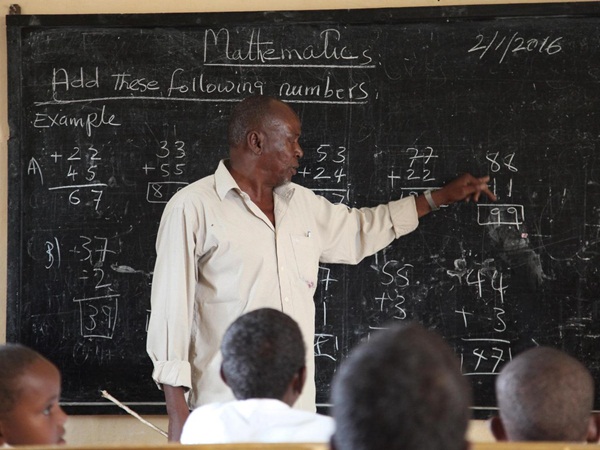 Mathematics. 2/1/2016
Add these following numbers.
Example
A) + 22 33 53 77 88
45 + 55 + 24 + 22 11
67 8 99
B) 37 7 55 44
2 1 + 3 + 3
39 47